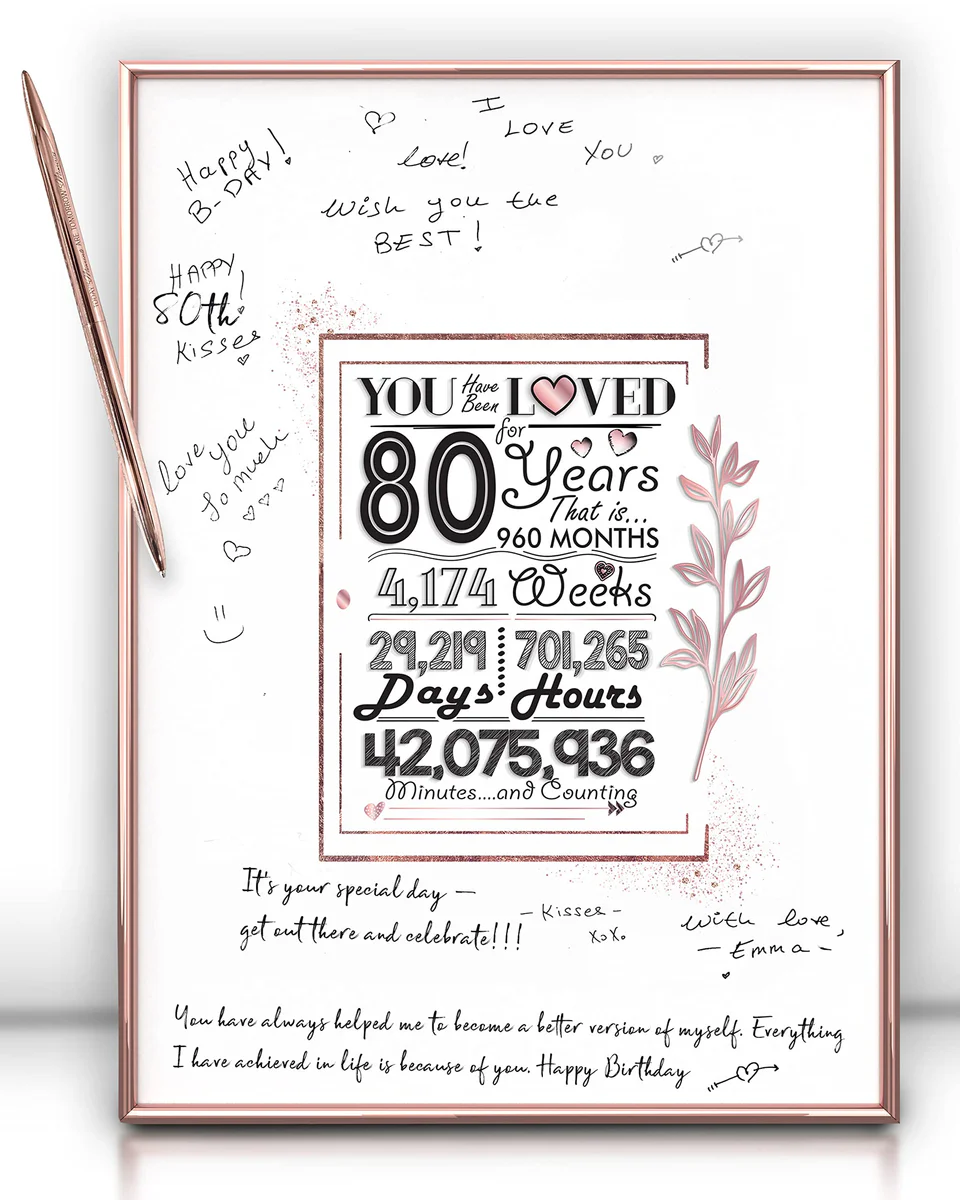 I
LOVE
YOU
love!
Happy
B-DAY!
Wish you the
BEST!
HAPPY
80th!
Kisses
love you
so much
YOU Have Been LOVED
for
80 Years
That is...
960 MONTHS
4,174 Weeks
29,219 Days
701,265 Hours
42,075,936
Minutes....and Counting
It's your special day –
get out there and celebrate!!!
- Kisses -
XoXo
With love,
- Emma -
You have always helped me to become a better version of myself. Everything
I have achieved in life is because of you. Happy Birthday